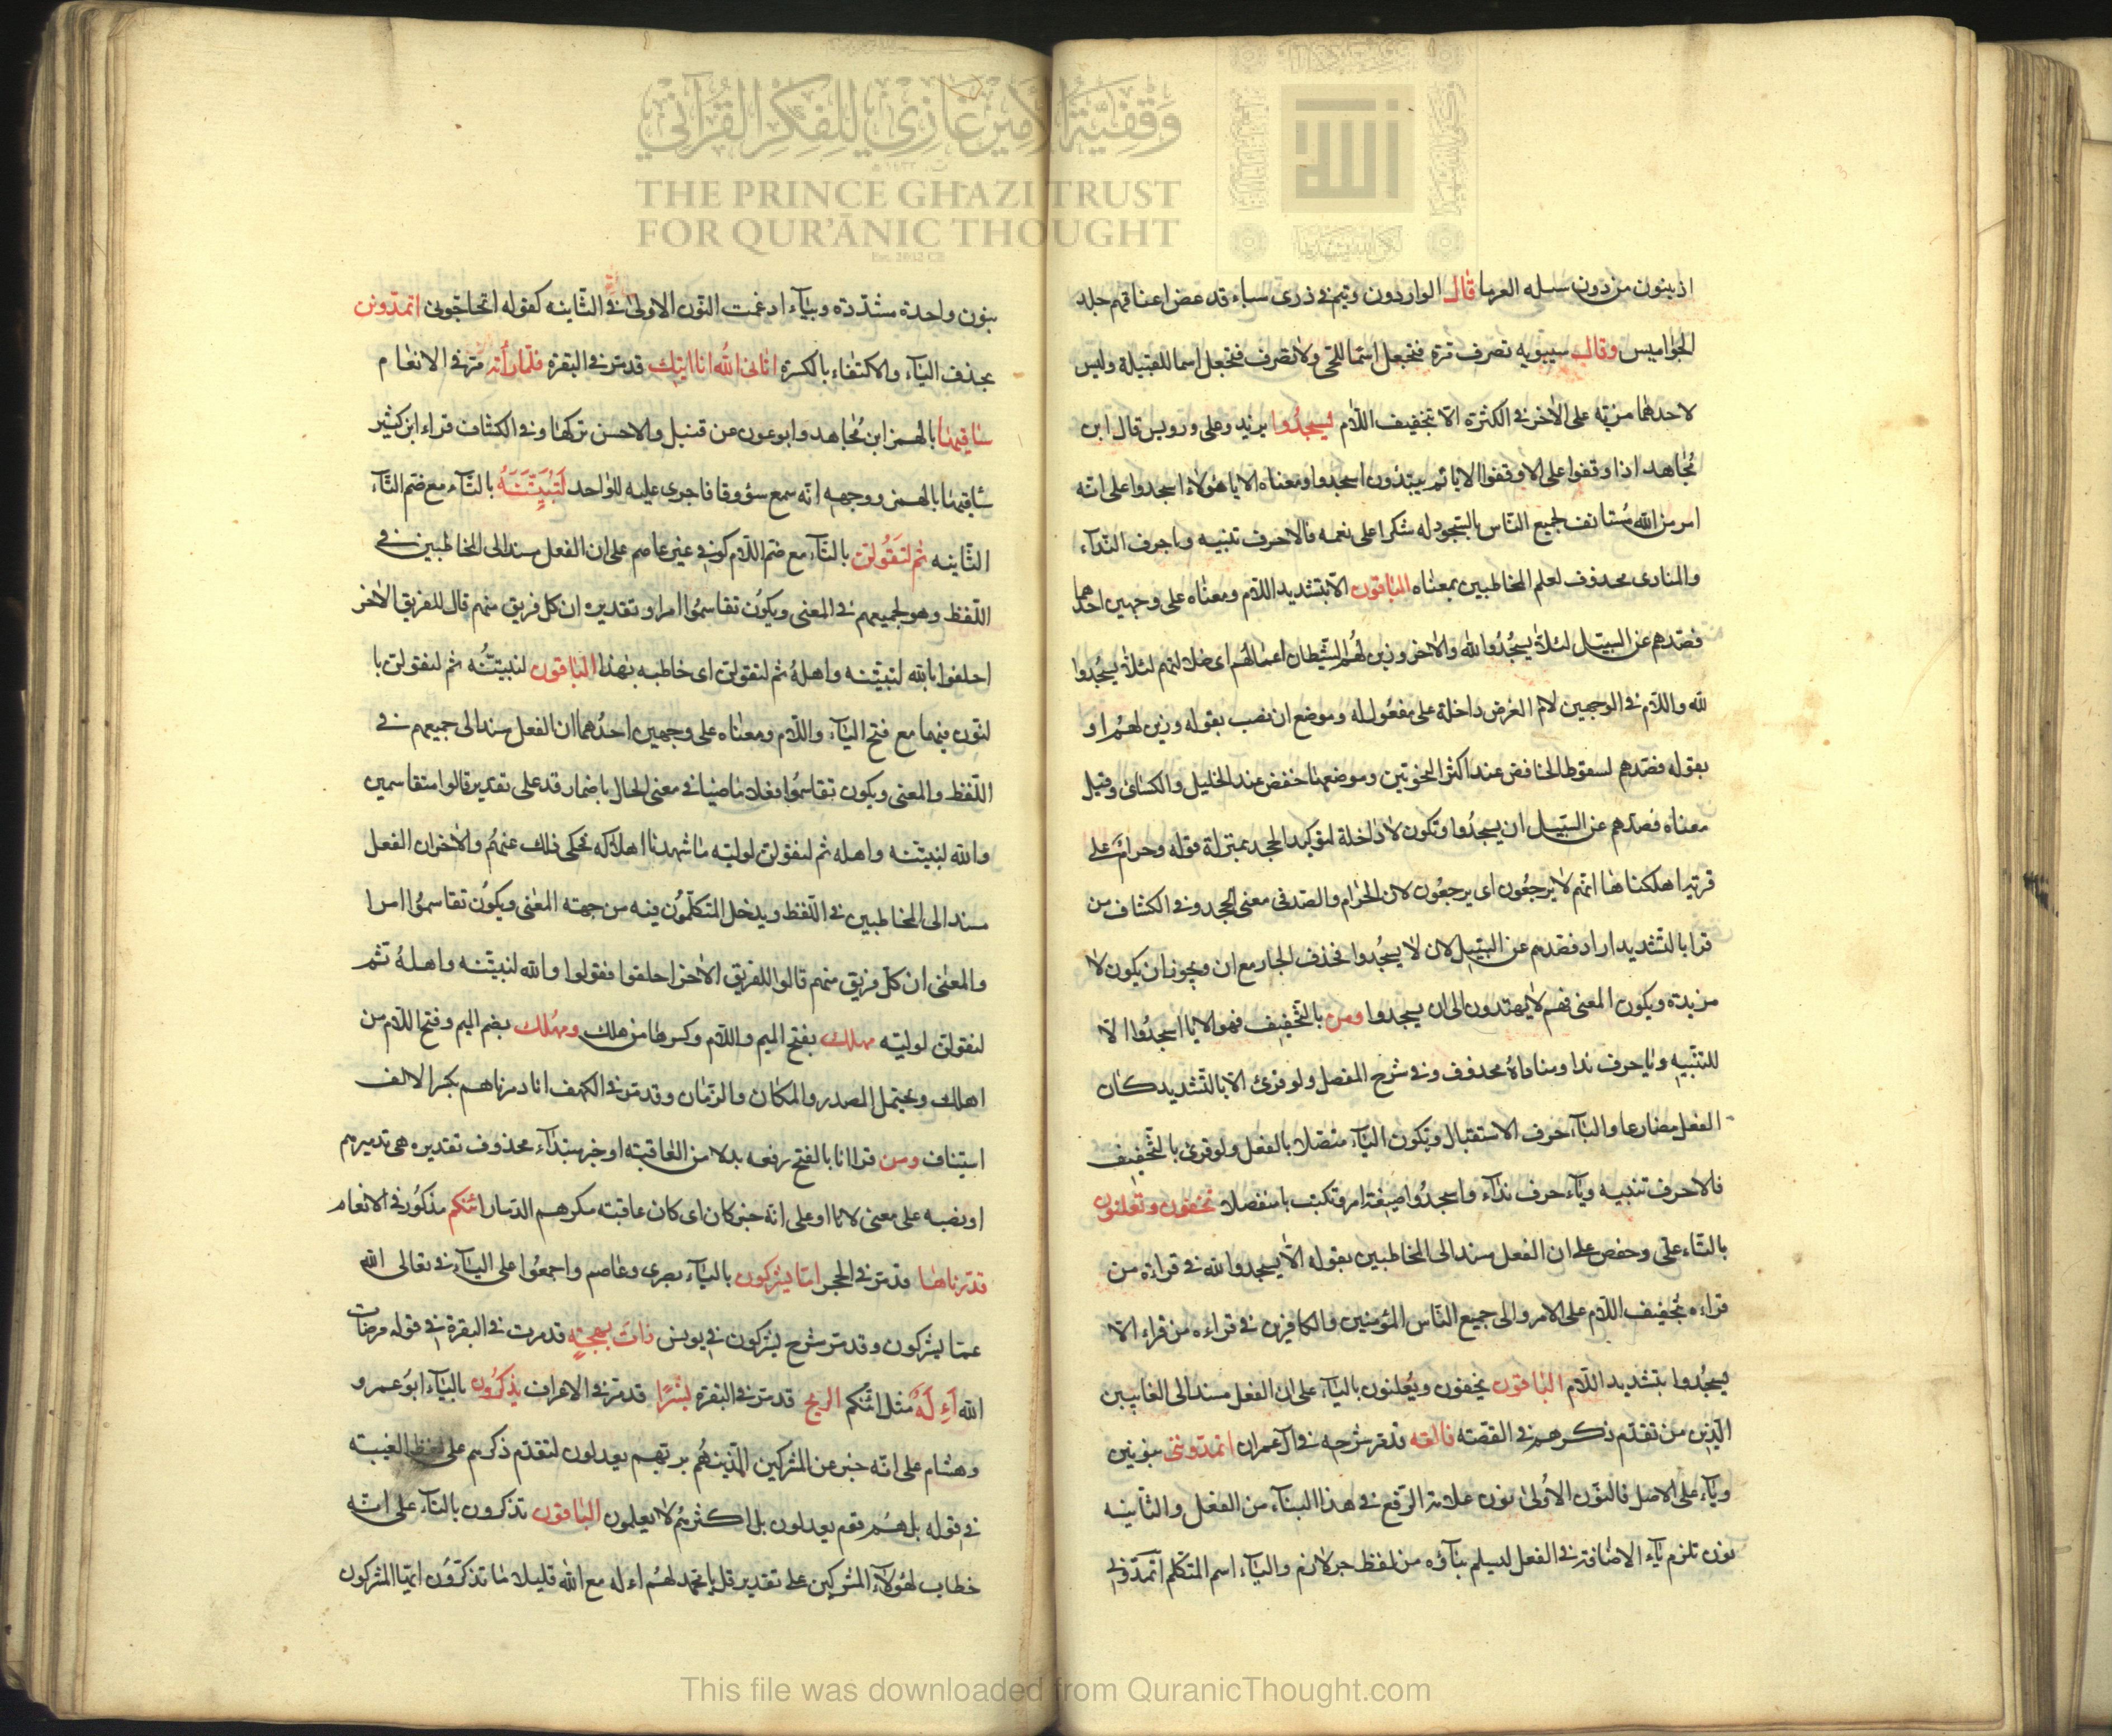 وقفية الأمير غازي للفكر القرآني
THE PRINCE GHAZI TRUST
FOR QUR'ĀNIC THOUGHT
Est. 2012 CE
اذ يبنون من دون سيله العرما قال الواردون وتيم فى ذرى سباء قد عض اعناقهم جلد
الجواميس وقال سيبويه تصرف مرة فتجعل اسما للحى ولا تصرف فتجعل اسما للقبيلة وليس
لاحدهما مزيّة على الاخر فى الكثرة الا بتخفيف اللّام ليسجدوا يزيد وعلى ورويس قال ابن
مجاهد اذا وقفوا على الا وقفوا الا يا ثم يبتدؤن اسجدوا ومعناه الا يا هؤلاء اسجدوا على انّه
امر من الله مستانف لجميع النّاس بالسّجود له شكرا على نعمه فالا حرف تنبيه ويا حرف النّداء
والمنادى محذوف لعلم المخاطبين بمعناه الباقون الا بتشديد اللّام ومعناه على وجهين احدهما
فصدّهم عن السّبيل لئلّا يسجدوا لله والاخر وزين لهم الشّيطان اعمالهم اى ضلالتهم لئلّا يسجدوا
لله واللّام فى الوجهين لام الغرض داخلة على مفعول له وموضع ان نصب بقوله وزين لهم او
بقوله فصدّهم لسقوط الخافض عند اكثر النحويّين وموضعهما خفض عند الخليل والكسائى وقيل
معناه فصدّهم عن السّبيل ان يسجدوا وتكون لا داخلة لتوكيد الجحد بمنزلة قوله وحرام على
قرية اهلكناها انّهم لا يرجعون اى يرجعون لان الحرام والصد فى معنى الجحد وفى الكشاف من
قرا بالتّشديد اراد فصدهم عن السّبيل لان لا يسجدوا فحذف الجار مع ان ويجوز ان يكون لا
مزيدة ويكون المعنى فهم لا يهتدون الى ان يسجدوا ومن بالتّخفيف فهو الا يا اسجدوا الا
للتنّبيه ويا حرف ندا ومناداه محذوف وفى شرح المفصل ولو قرئ الا بالتّشديد كان
الفعل مضارعا والياء حرف الاستقبال وتكون الياء متصلا بالفعل ولو قرئ بالتّخفيف
فالا حرف تنبيه وياء حرف نداء واسجدوا صيغة امر وتكتب يا منفصلا تخفون وتعلنون
بالتّاء علىّ وحفص على ان الفعل مسند الى المخاطبين بقوله الّا يسجدوا لله فى قراءة من
قراءه بتخفيف اللّام على الامر والى جميع النّاس المؤمنين والكافرين فى قراءه من قراء الا
يسجدوا بتشديد اللّام الباقون يخفون ويعلنون بالياء على ان الفعل مسند الى الغايبين
الّذين من تقدّم ذكرهم فى القصّة فالقه قد مر شرحه فى آل عمران اتمدوننى بنونين
وياء على الاصل فالنّون الاولى نون علامة الرّفع فى هذا البناء من الفعل والثّانية
نون تلزم ياء الاضافة فى الفعل ليسلم بناؤه من لفظ جر لازم والياء اسم المتكلم اتمدّونّى
بنون واحدة مشدّدة وبياء ادغمت النّون الاولى فى الثّانية كقوله اتحاجّونى اتمدّونن
بحذف الياء والاكتفاء بالكسرة اتانى الله انا اتيك قد مر فى البقرة فلمّا رأته مر فى الانعام
ساقيها بالهمز ابن مجاهد وابو عون عن قنبل والاحسن تركها وفى الكشّاف قراء ابن كثير
سأقيها بالهمز ووجهه انّه سمع سؤوقا فاجرى عليه للواحد لتبيّتنّه بالتّاء مع ضم التّاء
الثّانيه ثم لتقولن بالتّاء مع ضم اللّام كوفى غير عاصم على ان الفعل مسند الى المخاطبين فى
اللّفظ وهو لجميعهم فى المعنى ويكون تقاسموا امرا وتقديره ان كل فريق منهم قال للفريق الاخر
احلفوا بالله لتبيّتنه واهله ثم لتقولن اى خاطبه بهذا الباقون لنبيتنّه ثم لنقولن با
لنّون فيهما مع فتح الياء واللّام ومعناه على وجهين احدهما ان الفعل مسند الى جميعهم فى
اللّفظ والمعنى ويكون تقاسموا فعلا ماضيا فى معنى الحال باضمار قد على تقدير قالوا متقاسمين
والله لنبيتنّه واهله ثم لنقولن لوليّه ما شهدنا اهلاكه فحكى ذلك عنهم والاخر ان الفعل
مسند الى المخاطبين فى اللّفظ ويدخل المتكلّمون فيه من جهته المعنى ويكون تقاسموا امرا
والمعنى ان كلّ فريق منهم قالوا للفريق الاخر احلفوا فقولوا والله لنبيتّنه واهله ثم
لنقولنّ لوليّه مهلك بفتح الميم واللّام وكسرها من هلك ومهلك بضم الميم وفتح اللّام من
اهلك ويحتمل المصدر والمكان والزّمان وقد مر فى الكهف انا دمرناهم بكسر الالف
استيناف ومن قرا انا بالفتح رفعه بدلا من العاقبة او خبر مبتداء محذوف تقديره هى تدميرهم
او نصبه على معنى لانا او على انّه خبر كان اى كان عاقبة مكرهم الدّمار ائنكم مذكور فى الانعام
قدّرناها قد مر فى الحجر امّا يشركون بالياء بصرى وعاصم واجمعوا على الياء فى تعالى الله
عمّا يشركون وقد مر شرح يشركون فى يونس ذات بهجة قد مرت فى البقرة فى قوله مرضات
الله أءله مثل ائنّكم الريح قد مر فى البقرة بشرا قد مر فى الاعراف يذكرون بالياء ابو عمرو
وهشام على انّه خبر عن المشركين الّذينهم بربّهم يعدلون لتقدّم ذكرهم على لفظ الغيبة
فى قوله بل هم قوم يعدلون بل اكثرهم لا يعلمون الباقون تذكرون بالتّاء على انّه
خطاب لهؤلاء المشركين على تقدير قل يا محمد لهم اءله مع الله قليلا ما تذكّرون ايّها المشركون
This file was downloaded from QuranicThought.com